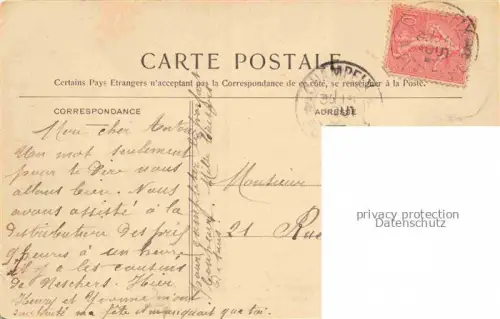 CARTE POSTALE
Certains Pays Etrangers n'acceptant pas la Correspondance de ce côté, se renseigner à la Poste.
CORRESPONDANCE
ADRESSE
Mon cher Antoine
Un mot seulement
pour te Dire nous
allons bien. Nous
avons assisté à la
distribution des prix
9 heures à un heur,
il y a les cousins
de Neschers. Hier,
Henry et Yvonne m'ont
souhaité ma fête il manquait que toi.
Monsieur
21 Rue
privacy protection
Datenschutz